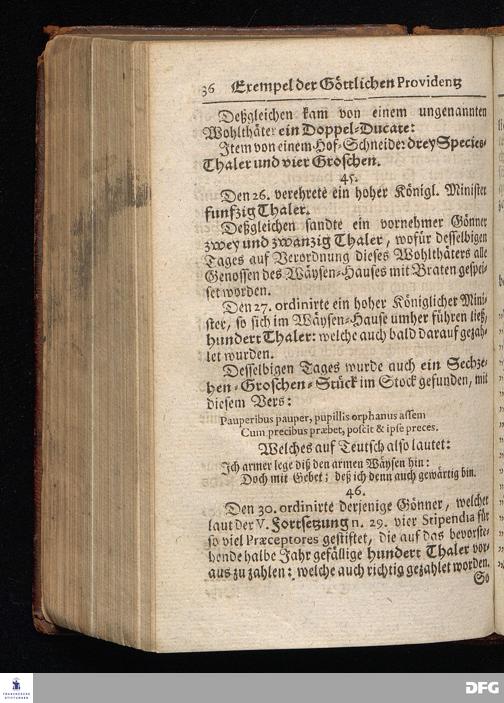 36 Exempel der Göttlichen Providentz
Deßgleichen kam von einem ungenannten
Wohlthäter ein Doppel-Ducate:
Item von einem Hof-Schneider drey Species-
Thaler und vier Groschen.
45.
Den 26. verehrete ein hoher Königl. Minister
funfzig Thaler.
Deßgleichen sandte ein vornehmer Gönner
zwey und zwanzig Thaler, wofür desselbigen
Tages auf Verordnung dieses Wohlthäters alle
Genossen des Wäysen-Hauses mit Braten gespei-
set worden.
Den 27. ordinirte ein hoher Königlicher Mini-
ster, so sich im Wäysen-Hause umher führen ließ,
hundert Thaler: welche auch bald darauf gezah-
let wurden.
Desselbigen Tages wurde auch ein Sechze-
hen-Groschen-Stück im Stock gefunden, mit
diesem Vers:
Pauperibus pauper, pupillis orphanus assem
Cum precibus præbet, poscit & ipse preces.
Welches auf Teutsch also lautet:
Ich armer lege diß den armen Wäysen hin:
Doch mit Gebet; deß ich denn auch gewärtig bin.
46.
Den 30. ordinirte derjenige Gönner, welcher
laut der V. Fortsetzung n. 29. vier Stipendia für
so viel Præceptores gestiftet, die auf das bevorste-
hende halbe Jahr gefällige hundert Thaler vor-
aus zu zahlen: welche auch richtig gezahlet worden.
So
FRANCKESCHE
STIFTUNGEN
DFG